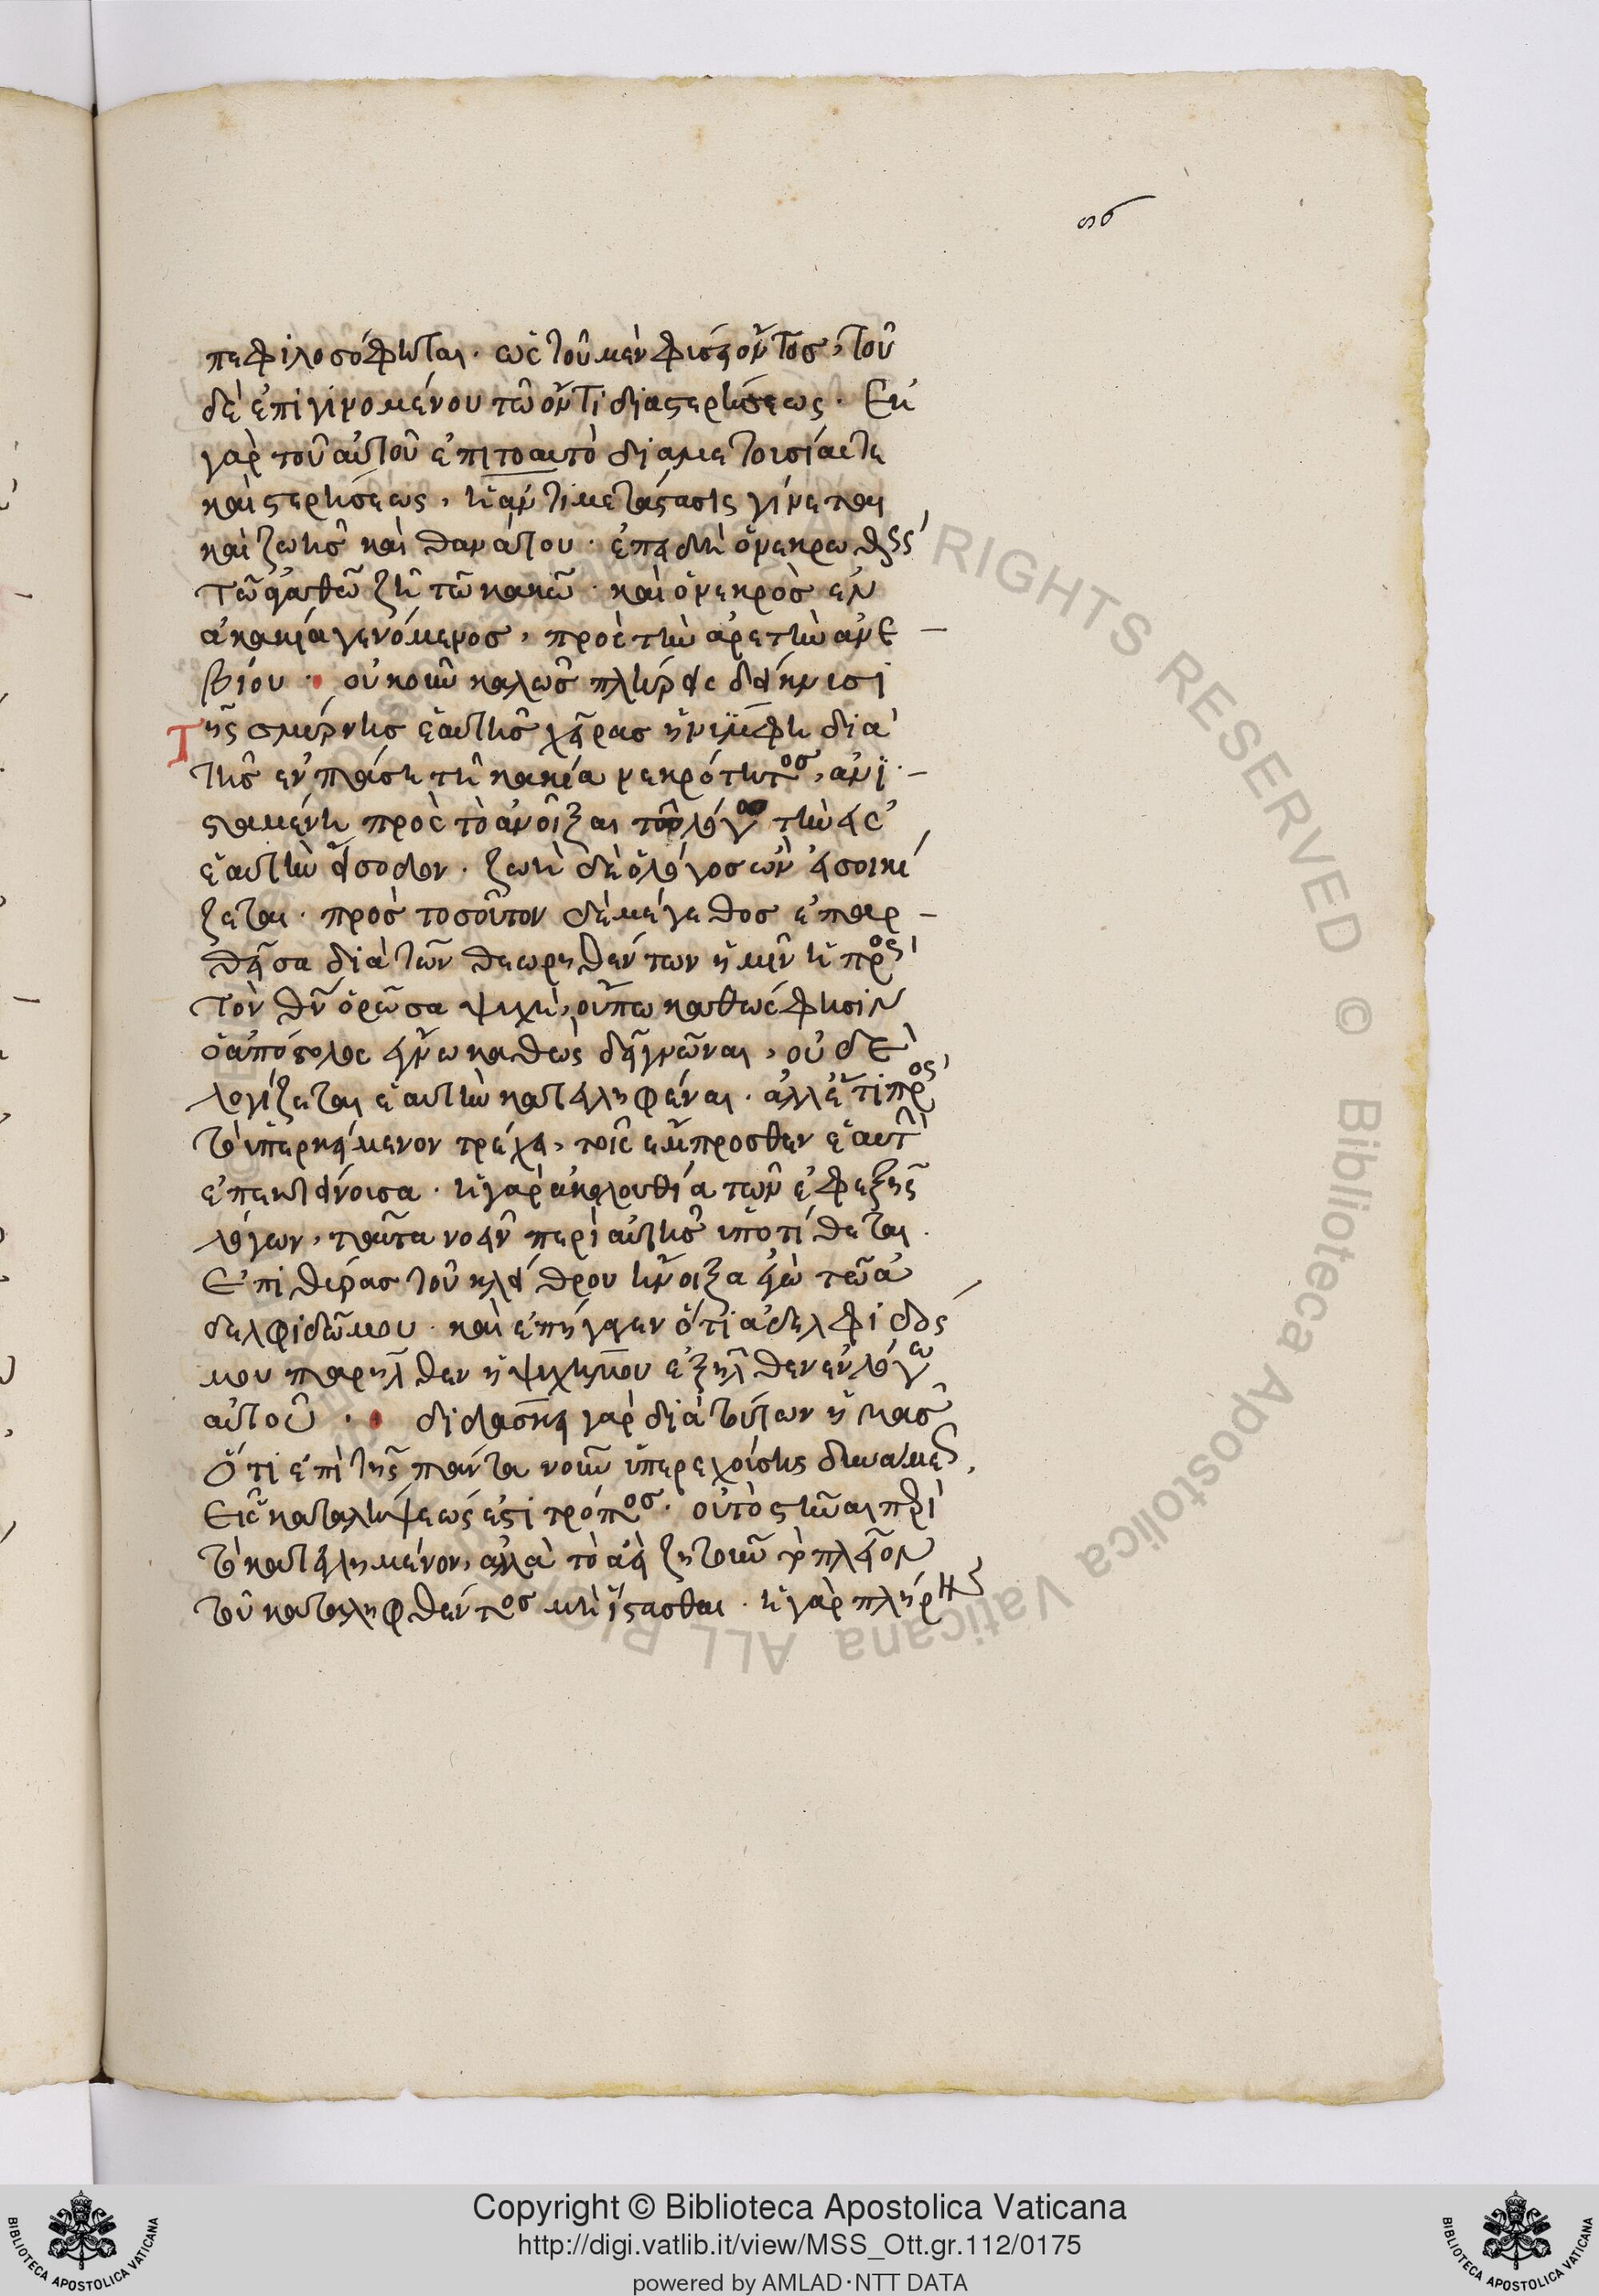 ϛσ
πεφιλοσόφηται. ὡς τοῦ μὲν φύσει ὄντος, τοῦ
δὲ ἐπιγινομένου τῷ ὄντι διὰ στερήσεως. Ἐκ
γὰρ τοῦ αὐτοῦ ἐπιτοαυτὸ δια μετουσίας τε
καὶ στερήσεως, ἡ ἀντιμετάστασις γίνεται
καὶ ζωῆς καὶ θανάτου. ἐπειδὴ ὁ νεκρωθεὶς
τῶ ἀγαθῶ ζῆ τῶ κακῶ. καὶ ὁ νεκρὸς ἐν
κακία γενόμενος, πρὸς τὴν ἀρετὴν ἀνε
βίου. οὐκοῦν καλῶς πλήρεις δείκνυσι
Τῆς σμύρνης ἑαυτῆς χεῖρας ἡ νύμφη διὰ
τῆς ἐν πάση τῆ κακία νεκρότητος, ἀνι
σταμένη πρὸς τὸ ἀνοῖξαι τῶ λόγω τὴν εἰς
ἑαυτὴν εἴσοδον. ζωὴ δὲ ὁ λόγος ὢν εἰσοικί
ζεται. πρὸς τοσοῦτον δὲ μέγεθος ἐπαρ
θεῖσα διὰ τῶν θεωρηθέντων ἡμῖν ἡ πρὸς
τὸν θν ὁρῶσα ψυχὴ, οὔπω καθώς φησιν
ὁ ἀπόστολος ἔγνω καθὼς δεῖ γνῶναι, οὐδὲ
λογίζεται ἑαυτὴν κατειληφέναι. ἀλλ' ἔτι πρὸς
τὸ ὑπερκείμενον τρέχει, τοῖς ἔμπροσθεν ἑαυτὴν
ἐπεκτείνουσα. ἡ γὰρ ἀκολουθία τῶν ἐφεξῆς
λόγων, ταῦτα νοεῖν περὶ αὐτῆς ὑποτίθεται.
Ἐπὶ χεῖρας τοῦ κλείθρου ἤνοιξα ἐγὼ τῶ ἀ
δελφιδῶ μου. καὶ ἐπήγαγεν ὅτι ἀδελφιδός
μου παρῆλθεν ἡ ψυχή μου ἐξῆλθεν ἐν λόγω
αὐτοῦ. διδάσκει γὰρ διὰ τούτων ἡμᾶς
Ὅτι ἐπὶ τῆς πάντα νοῦν ὑπερεχούσης δυνάμεως,
Εἷς καταλήψεώς ἐστι τρόπος. οὐ τὸ στῆναι περὶ
τὸ κατειλημμένον, ἀλλὰ τὸ ἀεὶ ζητοῦντα πλεῖον
τοῦ καταληφθέντος μὴ ἵστασθαι. ἡ γὰρ πλήρης
RIGHTS RESERVED © Biblioteca Apostolica Vaticana ALL RIGHTS
Copyright © Biblioteca Apostolica Vaticana
http://digi.vatlib.it/view/MSS_Ott.gr.112/0175
powered by AMLAD·NTT DATA
BIBLIOTECA APOSTOLICA VATICANA
BIBLIOTECA APOSTOLICA VATICANA